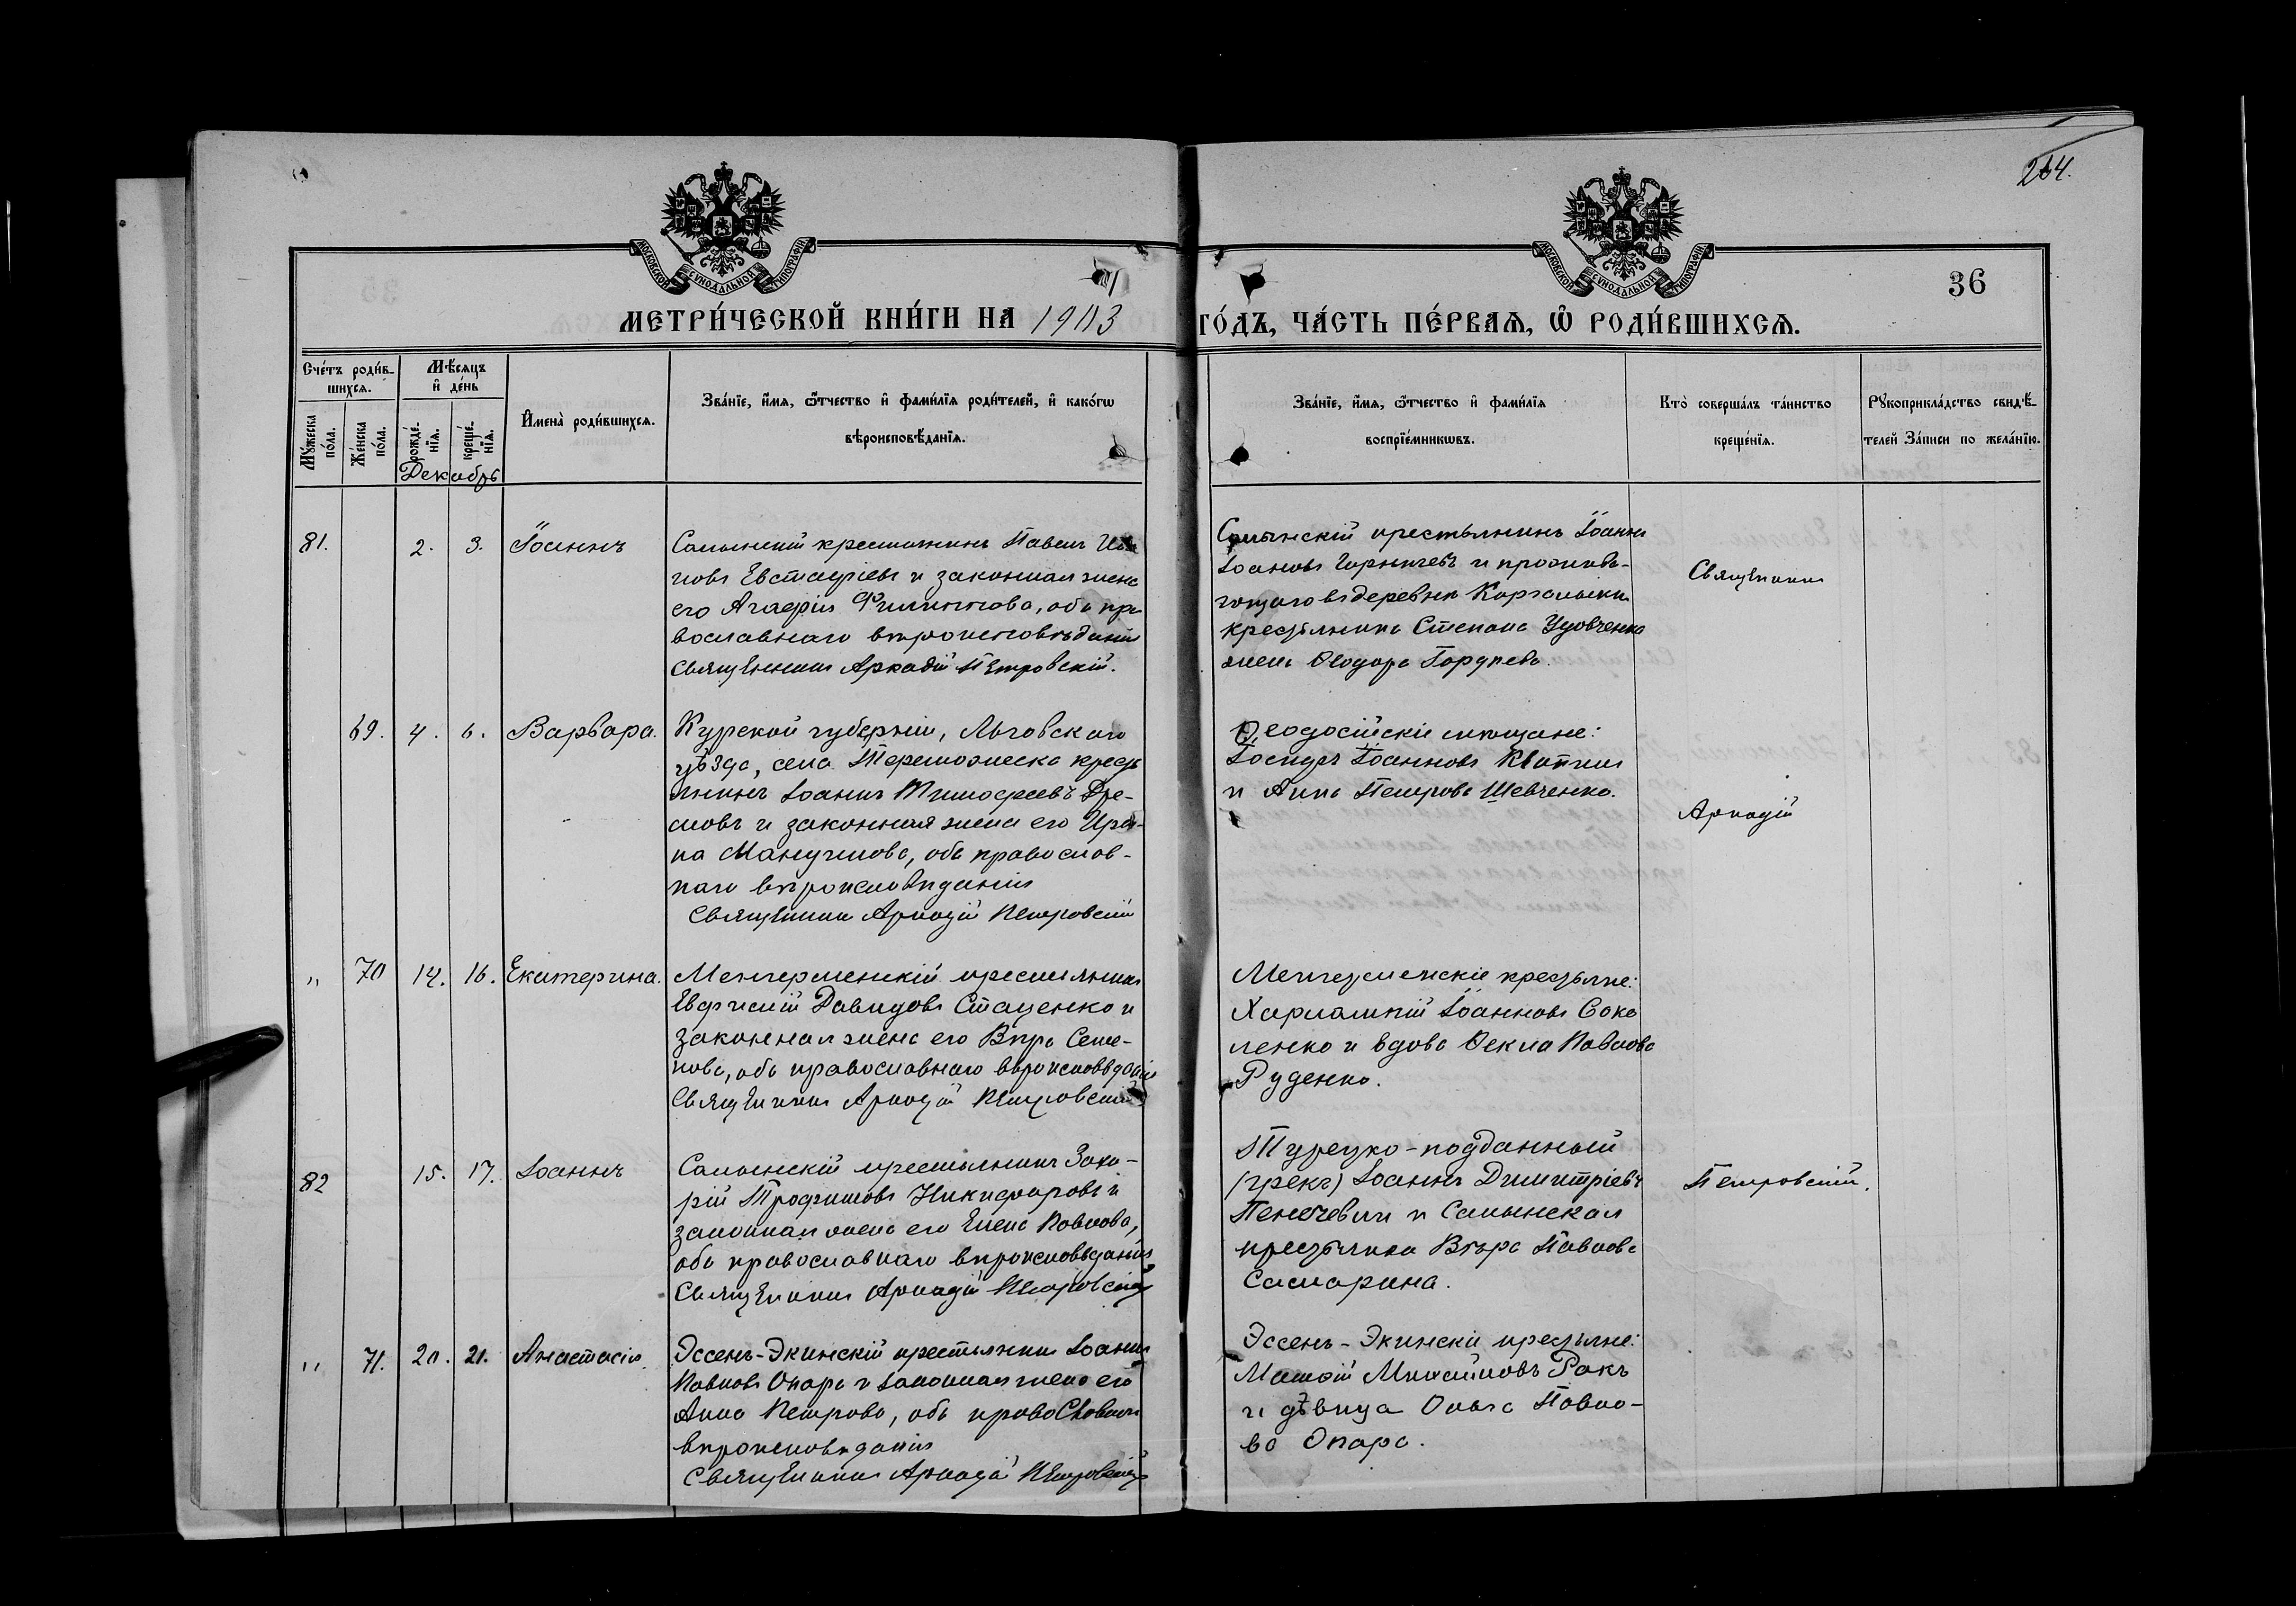 264.
МОСКОВСКОЙ СѴНОДАЛЬНОЙ ТИПОГРАФІИ
МОСКОВСКОЙ СѴНОДАЛЬНОЙ ТИПОГРАФІИ
36
МЕТРИ́ЧЕСКОЙ КНИ́ГИ НА 1903 ГО́ДЪ, ЧА́СТЬ ПЕ́РВАѦ, Ѡ РОДИ́ВШИХСѦ.
Сче́тъ роди́в-
шихсѧ.
Мꙋжеска по́ла.
Же́нска по́ла.
Мѣ́сѧцъ
и҆ де́нь
рожде́-нїѧ.
креще́-нїѧ.
Декабрь
И҆мена̀ роди́вшихсѧ.
Зва́нїе, и҆́мѧ, ѻ҆́тчество и҆ фами́лїѧ роди́телей, и҆ како́гѡ
вѣроисповѣ́данїѧ.
Зва́нїе, и҆́мѧ, ѻ҆́тчество и҆ фами́лїѧ
воспрїе́мникѡвъ.
Кто̀ соверша́лъ та́инство
креще́нїѧ.
Рꙋкоприкла́дство свидѣ́-
телей за́писи по жела́нїю.
81. 2. 3. Іоаннъ
крестьянинъ Павелъ
Евстафіевъ и законная жена
его Агафія Филиппова, оба пра
вославнаго вѣроисповѣданія
Священникъ Аркадій Петровскій.
крестьянинъ Іоаннъ
Іоанновъ и прожива-
ющаго въ деревни
крестьянина Степана
жена Ѳеодора
Священникъ
69. 4. 6. Варвара.
Курской губерніи, Льговскаго
уѣзда, села крестья
нинъ Іоаннъ Тимофеевъ Дре-
мовъ и законная жена его Ири-
на оба православ-
наго вѣроисповѣданія
Священникъ Аркадій Петровскій
Ѳеодосійскіе мѣщане:
Іосифъ Іоанновъ
и Анна Петрова Шевченко.
Аркадій
" 70 14. 16. Екатерина.
крестьянинъ
Евфимій Давидовъ Стаценко и
законная жена его Вѣра Семе-
нова, оба православнаго вѣроисповѣданія
Священникъ Аркадій Петровскій
крестьяне:
Харлампій Іоанновъ Соко
ленко и вдова Ѳекла Павлова
Руденко.
82 15. 17. Іоаннъ
крестьянинъ Заха-
рій Трофимовъ Никифоровъ и
законная жена его Елена Павлова,
оба православнаго вѣроисповѣданія
Священникъ Аркадій Петровскій
Турецко-подданный
(грекъ) Іоаннъ Димитріевъ
и
крестьянка Вѣра Павлова
Самарина.
Петровскій.
" 71. 20. 21. Анастасія.
Эссенъ-Экинскій крестьянинъ Іоаннъ
Павловъ Опара и законная жена его
Анна Петрова, оба православнаго
вѣроисповѣданія
Священникъ Аркадій Петровскій
Эссенъ-Экинскіе крестьяне:
Михайловъ Ракъ
и дѣвица Ольга Павло-
ва Опара.